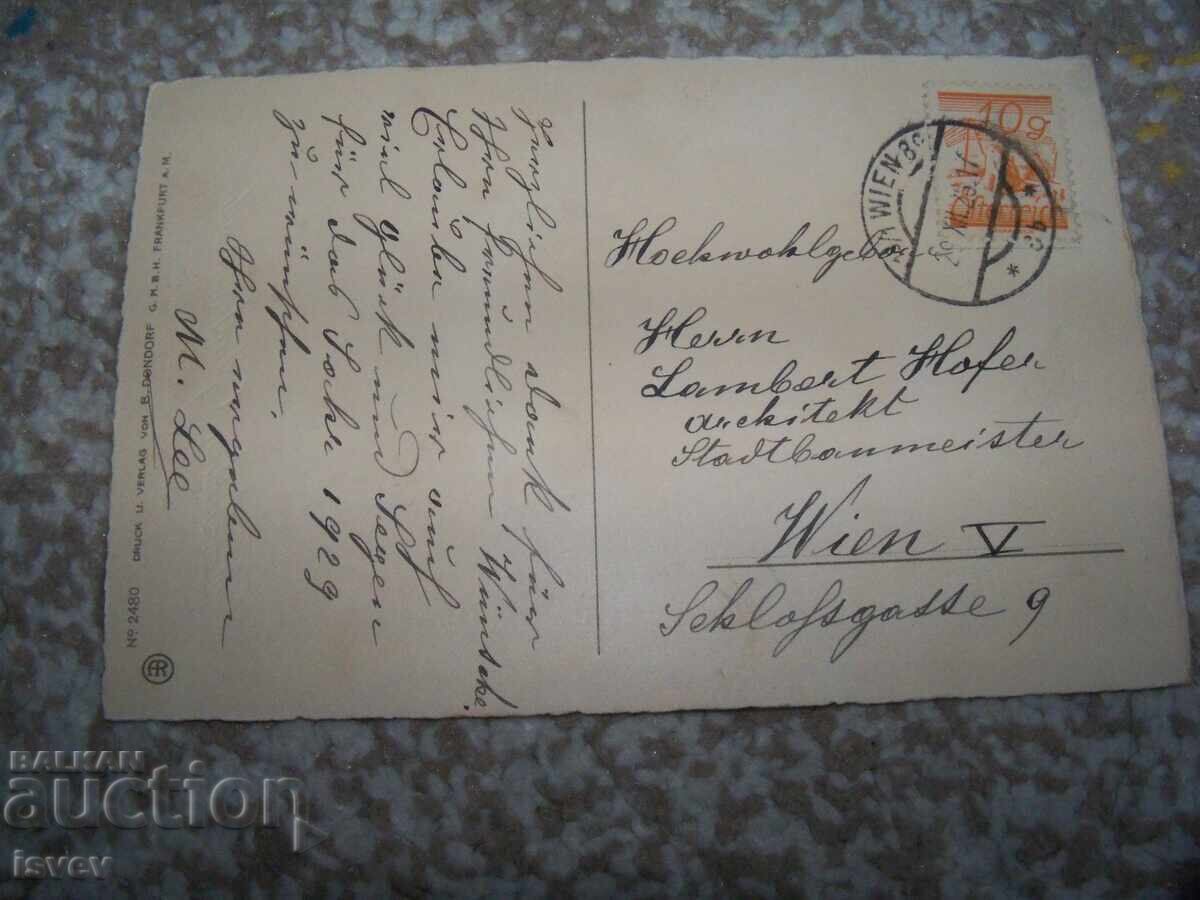 Herzlichen Dank für
Ihre freundlichen Wünsche.
Erlaube mir auf
viel Glück und Segen
für das Jahr 1929
zu wünschen.
Ihr ergebener
M. Lee
Nº 2480 DRUCK U. VERLAG VON B. DONDORF G.M.B.H. FRANKFURT A.M.
10 g
WIEN 8
Hochwohlgebor
Herrn
Lambert Hofer
Architekt
Stadtbaumeister
Wien V
Schloßgasse 9
BALKAN
auction
isvev